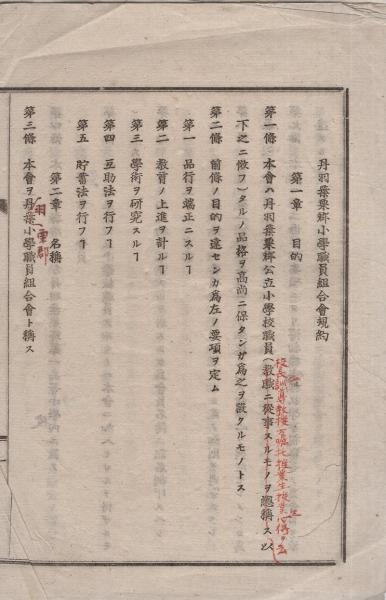 丹羽葉栗郡小學職員組合會規約
第一章 目的
第一條 本會ハ丹羽葉栗郡公立小學校職員(教職ニ從事スルモノヲ總稱ス以
下之ニ傚フ)タルノ品格ヲ高尚ニ保タンガ爲之ヲ設クルモノトス
第二條 前條ノ目的ヲ達センガ爲左ノ要項ヲ定ム
第一 品行ヲ端正ニスルヿ
第二 教育ノ上進ヲ計ルヿ
第三 學術ヲ研究スルヿ
第四 互助法ヲ行フヿ
第五 貯蓄法ヲ行フヿ
第二章 名稱
第三條 本會ヲ丹葉小學職員組合會ト稱ス
羽
栗郡